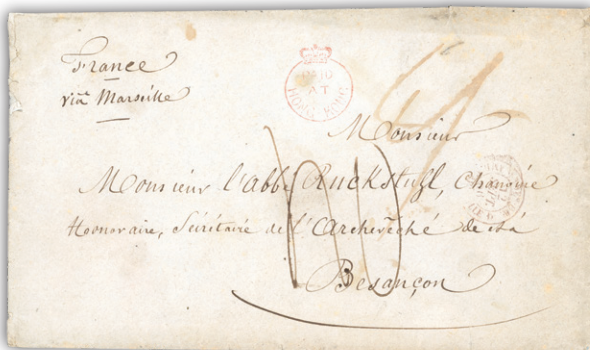 France
viâ Marseille
PAID
AT
HONG KONG
Monsieur
Monsieur l'abbé Ruckstuhl, Chanoine
Honoraire, Sécrétaire de l'Archevêché de
Besançon